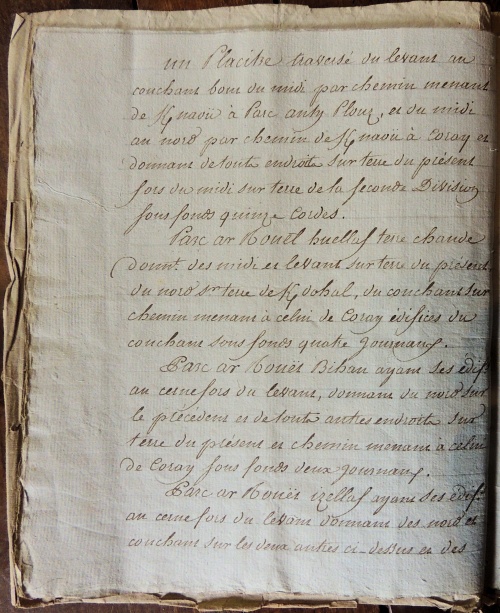 un Placitre traversé du levant au
couchant bout du midi par chemin menant
de Kjnaou à Parc anty Plouz, et du midi
au nord par chemin de Kjnaou à Coray et
donnant de tout endroits sur terre du présent
fors du midi sur terre de la seconde Division
sous fonds quinze Cordes.
Parc ar Rouët huellaf terre chaude
donnt. des midi et levant sur terre du présent
du nord sr terre de Kdohal, du couchant sur
chemin menant à celui de Coray édifices du
couchant sous fonds quatre journaux.
Parc ar Rouët Bihan ayant ses édif.
au cerne fors du levant, donnant du nord sur
le précédent et de tout autres endroits sur
terre du présent et chemin menant à celui
de Coray sous fonds deux journaux.
Parc ar Rouët izellaf ayant ses édif.
au cerne fors du levant donnant des nord et
couchant sur les deux autres ci-dessus et des